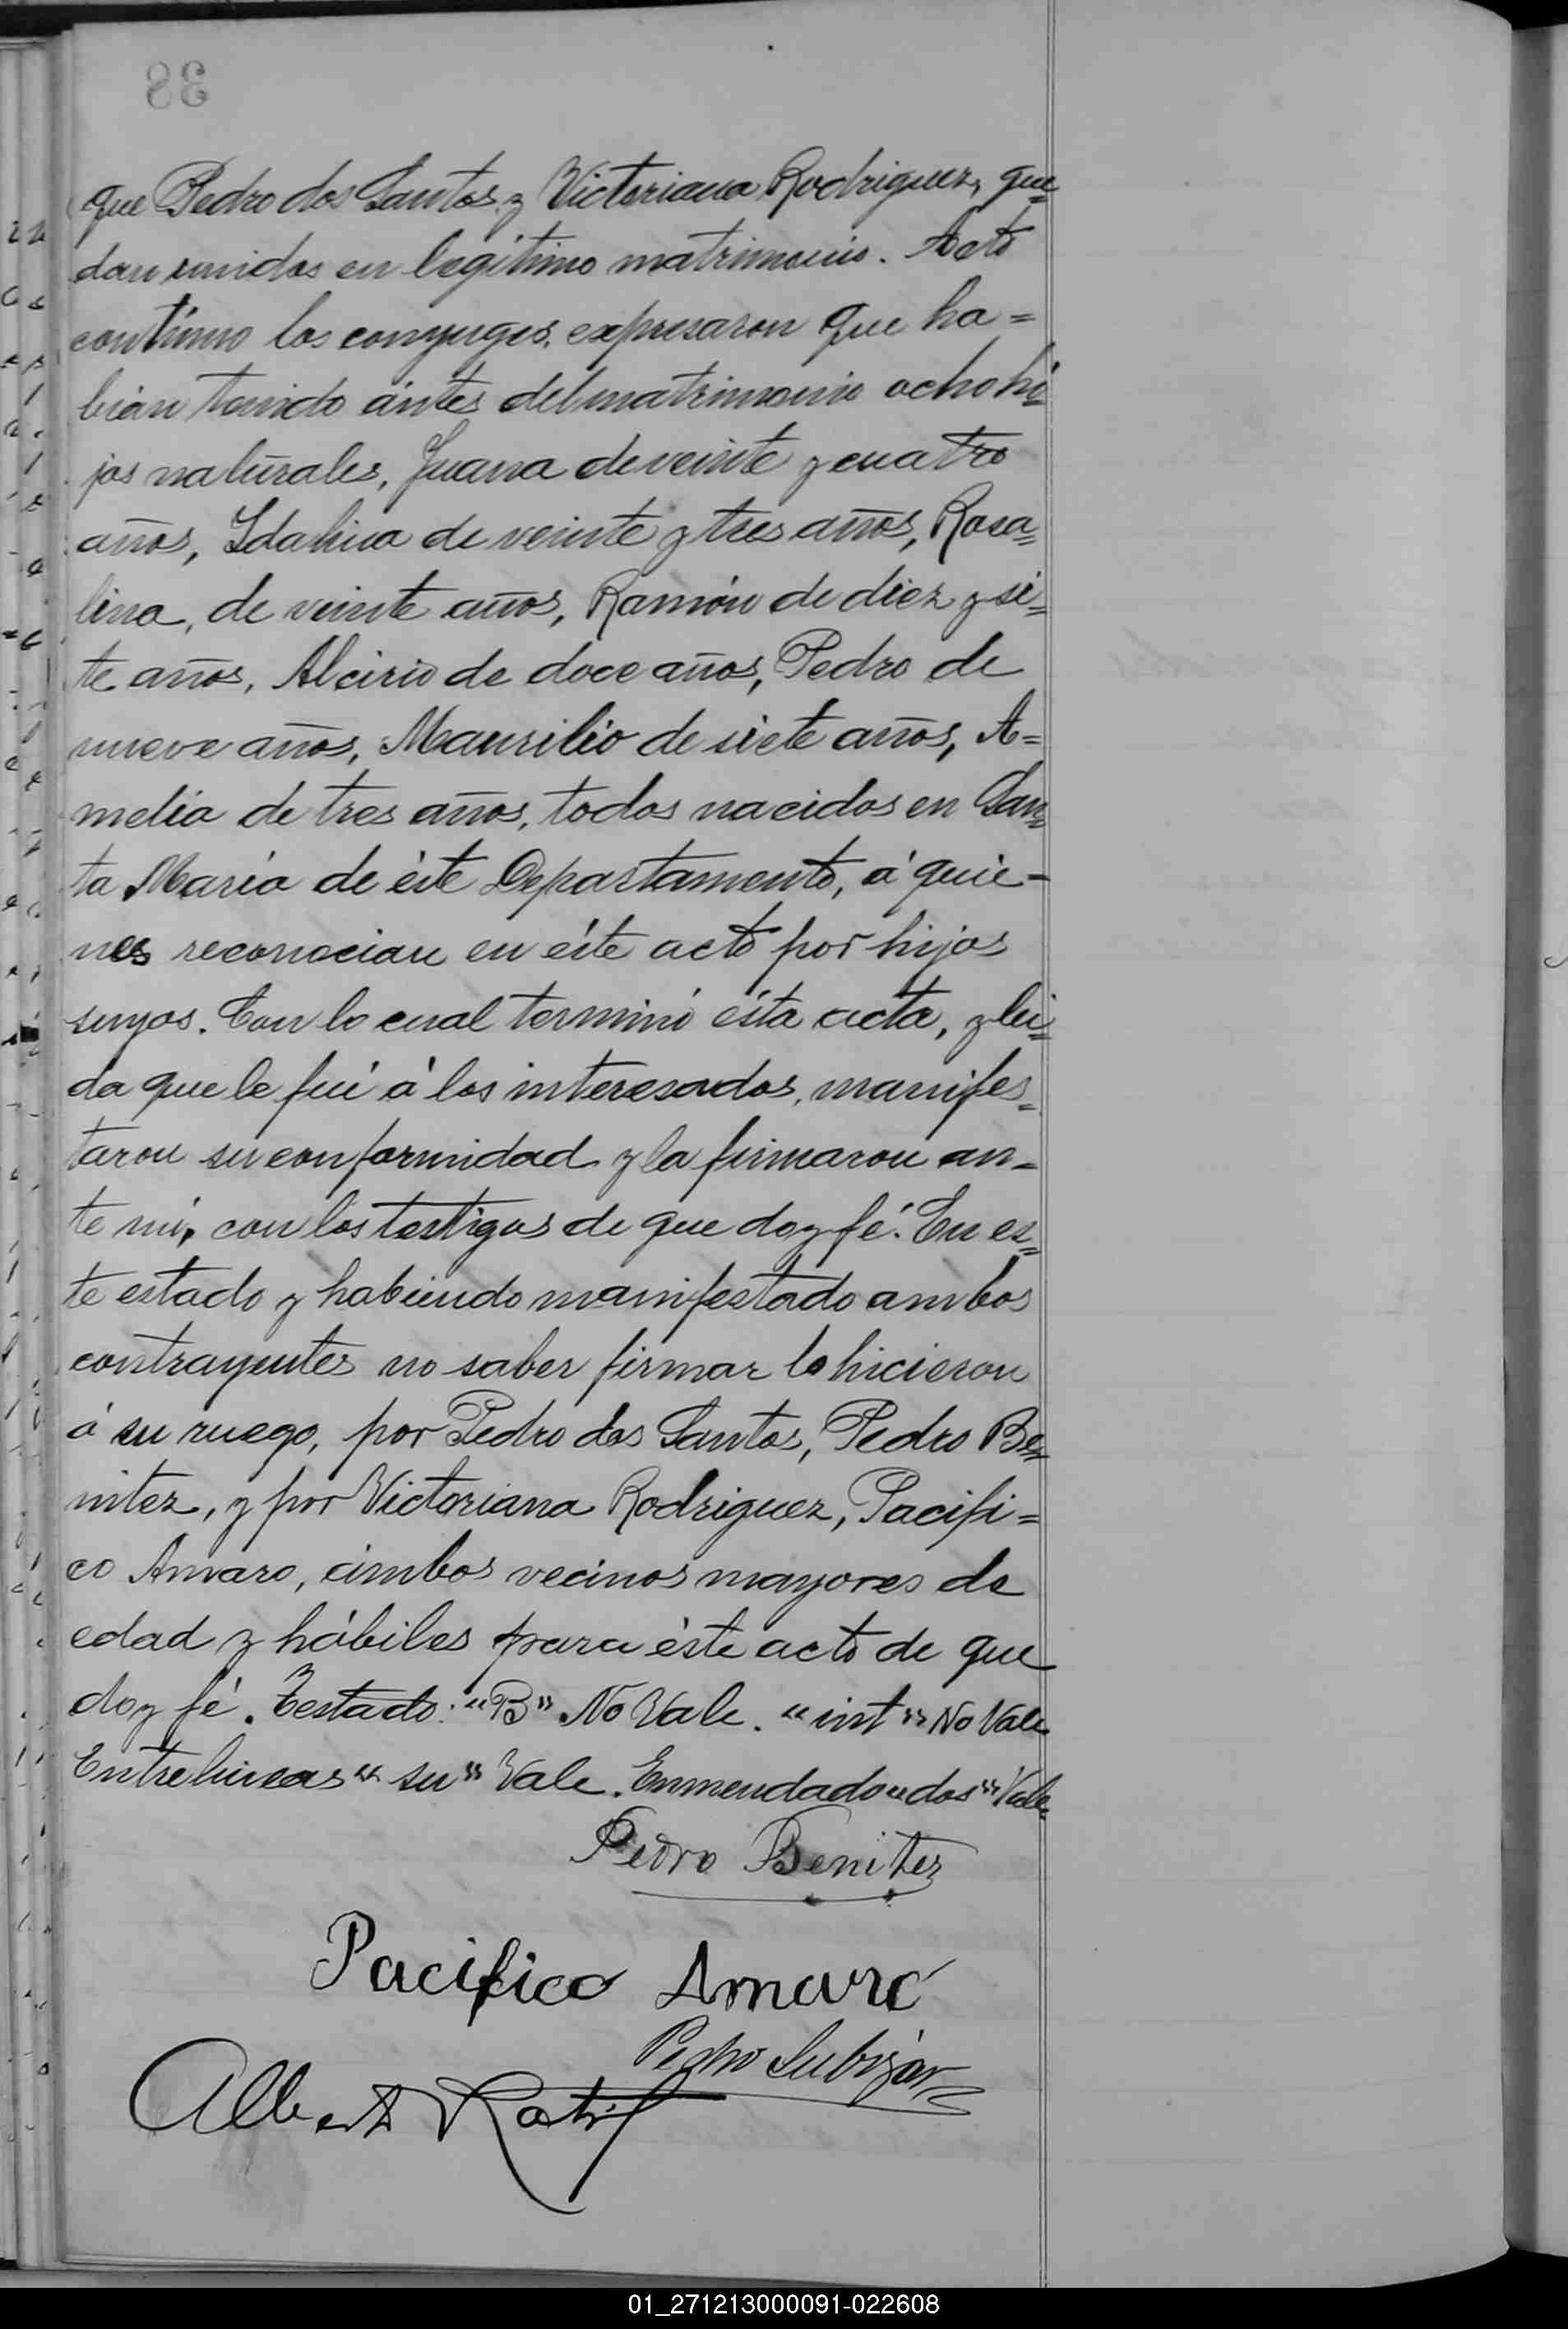 38
que Pedro dos Santos y Victoriana Rodriguez, que=
dan unidos en legítimo matrimonio. Acto
contínuo los conyuges, expresaron que ha=
bian tenido ántes del matrimonio ocho hi=
jos naturales, Juana de veinte y cuatro
años, Idalina de veinte y tres años, Rosa=
lina, de veinte años, Ramón de diez y sie=
te años, Alcirio de doce años, Pedro de
nueve años, Maurilio de siete años, A=
melia de tres años, todos nacidos en San=
ta María de éste Departamento, á quie=
nes reconocian en éste acto por hijos
suyos. Con lo cual terminó ésta acta, y lei=
da que le fué á los interesados, manifes=
taron su conformidad y la firmaron an=
te mí, con los testigos de que doy fé. En es=
te estado y habiendo manifestado ambos
contrayentes no saber firmar lo hicieron
á su ruego, por Pedro dos Santos, Pedro Be=
nitez, y por Victoriana Rodriguez, Pacifi=
co Amaro, ámbos vecinos mayores de
edad y hábiles para éste acto de que
doy fé. Testado: "B" No Vale. "int" No Vale
Entrelineas "su" Vale. Enmendado "dos" Vale
Pedro Benitez
Pacifico Amaro
Pedro
Alberto
01_271213000091-022608